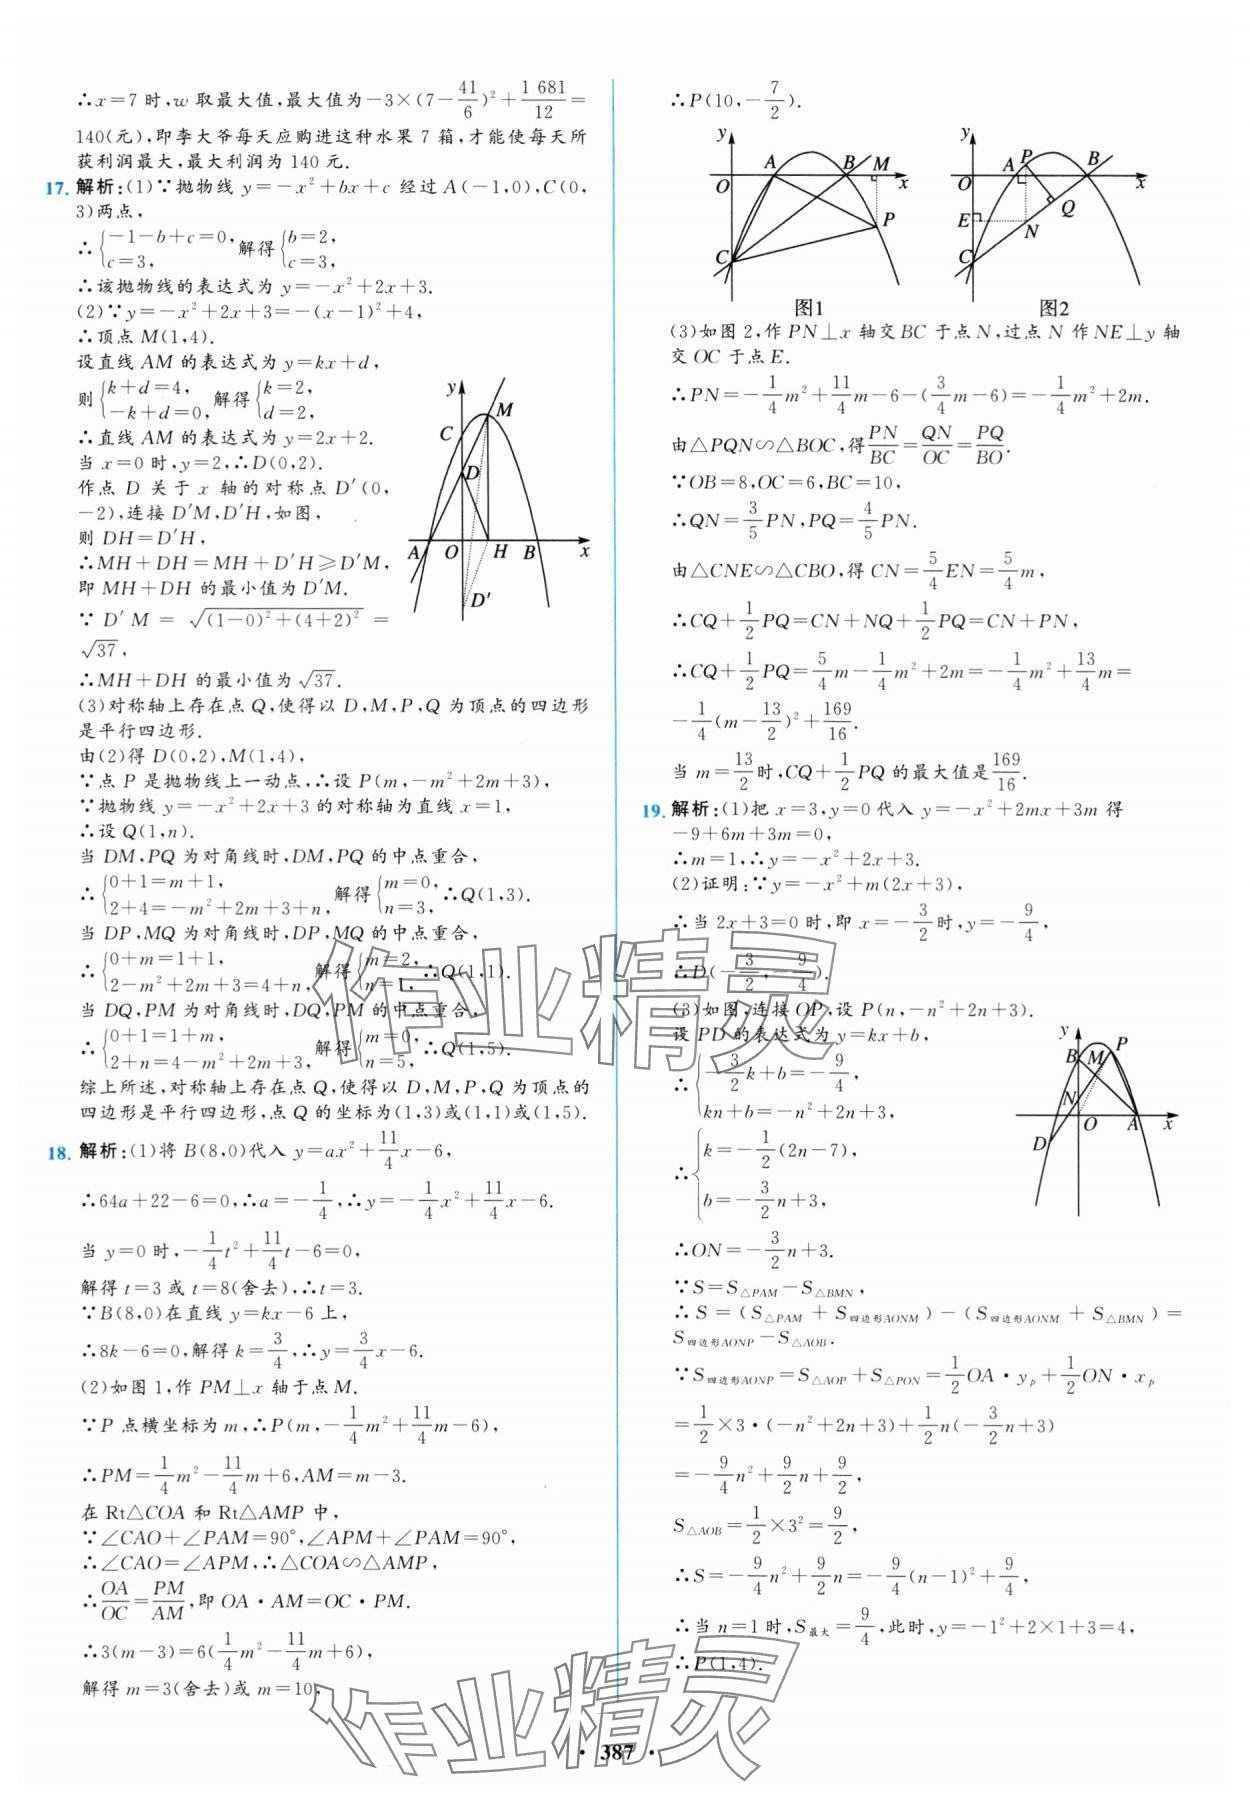 ∴x=7时,w取最大值,最大值为-3×(7-41/6)²+1 681/12=
140(元),即李大爷每天应购进这种水果7箱,才能使每天所
获利润最大,最大利润为140元.
17. 解析:(1)∵抛物线y=-x²+bx+c经过A(-1,0),C(0,
3)两点,
∴{-1-b+c=0, c=3, 解得{b=2, c=3,
∴该抛物线的表达式为y=-x²+2x+3.
(2)∵y=-x²+2x+3=-(x-1)²+4,
∴顶点M(1,4).
设直线AM的表达式为y=kx+d,
则{k+d=4, -k+d=0, 解得{k=2, d=2,
∴直线AM的表达式为y=2x+2.
当x=0时,y=2,∴D(0,2).
作点D关于x轴的对称点D′(0,
-2),连接D′M,D′H,如图,
则DH=D′H,
∴MH+DH=MH+D′H≥D′M,
即MH+DH的最小值为D′M.
∵D′M=√((1-0)²+(4+2)²)=
√37,
∴MH+DH的最小值为√37.
y
M
C
D
A
O
H
B
x
D′
(3)对称轴上存在点Q,使得以D,M,P,Q为顶点的四边形
是平行四边形.
由(2)得D(0,2),M(1,4),
∵点P是抛物线上一动点,∴设P(m,-m²+2m+3),
∵抛物线y=-x²+2x+3的对称轴为直线x=1,
∴设Q(1,n).
当DM,PQ为对角线时,DM,PQ的中点重合,
∴{0+1=m+1, 2+4=-m²+2m+3+n, 解得{m=0, n=3, ∴Q(1,3).
当DP,MQ为对角线时,DP,MQ的中点重合,
∴{0+m=1+1, 2-m²+2m+3=4+n, 解得{m=2, n=1, ∴Q(1,1).
当DQ,PM为对角线时,DQ,PM的中点重合,
∴{0+1=1+m, 2+n=4-m²+2m+3, 解得{m=0, n=5, ∴Q(1,5).
综上所述,对称轴上存在点Q,使得以D,M,P,Q为顶点的
四边形是平行四边形,点Q的坐标为(1,3)或(1,1)或(1,5).
18. 解析:(1)将B(8,0)代入y=ax²+11/4x-6,
∴64a+22-6=0,∴a=-1/4,∴y=-1/4x²+11/4x-6.
当y=0时,-1/4t²+11/4t-6=0,
解得t=3或t=8(舍去),∴t=3.
∵B(8,0)在直线y=kx-6上,
∴8k-6=0,解得k=3/4,∴y=3/4x-6.
(2)如图1,作PM⊥x轴于点M.
∵P点横坐标为m,∴P(m,-1/4m²+11/4m-6),
∴PM=1/4m²-11/4m+6,AM=m-3.
在Rt△COA和Rt△AMP中,
∵∠CAO+∠PAM=90°,∠APM+∠PAM=90°,
∴∠CAO=∠APM,∴△COA∽△AMP,
∴OA/OC=PM/AM,即OA·AM=OC·PM.
∴3(m-3)=6(1/4m²-11/4m+6),
解得m=3(舍去)或m=10,
∴P(10,-7/2).
y
A
B
M
O
x
P
C
图1
y
A
P
B
O
x
E
Q
N
C
图2
(3)如图2,作PN⊥x轴交BC于点N,过点N作NE⊥y轴
交OC于点E.
∴PN=-1/4m²+11/4m-6-(3/4m-6)=-1/4m²+2m.
由△PQN∽△BOC,得PN/BC=QN/OC=PQ/BO.
∵OB=8,OC=6,BC=10,
∴QN=3/5PN,PQ=4/5PN.
由△CNE∽△CBO,得CN=5/4EN=5/4m,
∴CQ+1/2PQ=CN+NQ+1/2PQ=CN+PN,
∴CQ+1/2PQ=5/4m-1/4m²+2m=-1/4m²+13/4m=
-1/4(m-13/2)²+169/16.
当m=13/2时,CQ+1/2PQ的最大值是169/16.
19. 解析:(1)把x=3,y=0代入y=-x²+2mx+3m得
-9+6m+3m=0,
∴m=1,∴y=-x²+2x+3.
(2)证明:∵y=-x²+m(2x+3),
∴当2x+3=0时,即x=-3/2时,y=-9/4,
∴D(-3/2,-9/4).
(3)如图,连接OP,设P(n,-n²+2n+3).
设PD的表达式为y=kx+b,
∴{-3/2k+b=-9/4, kn+b=-n²+2n+3,
∴{k=-1/2(2n-7), b=-3/2n+3,
y
B
M
P
N
O
A
x
D
∴ON=-3/2n+3.
∵S=S△PAM-S△BMN,
∴S=(S△PAM+S四边形AONM)-(S四边形AONM+S△BMN)=
S四边形AONP-S△AOB.
∵S四边形AONP=S△AOP+S△PON=1/2OA·yₚ+1/2ON·xₚ
=1/2×3·(-n²+2n+3)+1/2n(-3/2n+3)
=-9/4n²+9/2n+9/2,
S△AOB=1/2×3²=9/2,
∴S=-9/4n²+9/2n=-9/4(n-1)²+9/4,
∴当n=1时,S最大=9/4,此时,y=-1²+2×1+3=4,
∴P(1,4).
作业精灵
作业精灵
·387·